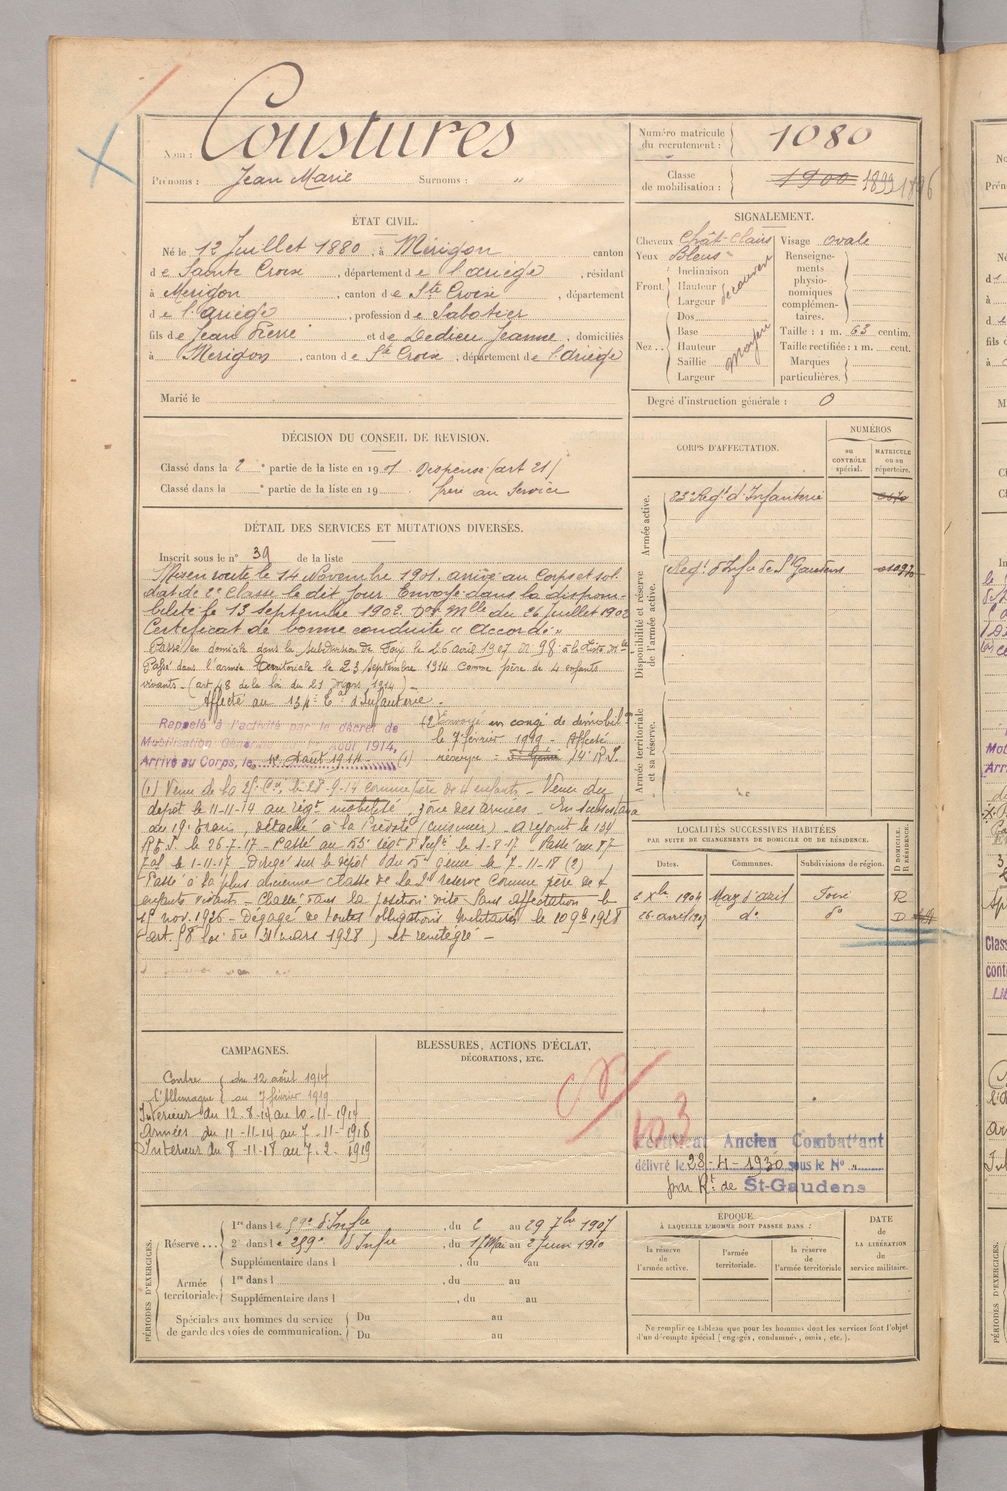 Nom : Coustures
Prénoms : Jean Marie Surnoms : "
Numéro matricule du recrutement : 1080
Classe de mobilisation : 1900 1899 1896
ÉTAT CIVIL.
Né le 12 Juillet 1880, à Mérigon canton
de Sainte Croix, département de l'ariège, résidant
à Merigon, canton de Ste Croix, département
de l'Ariège, profession de Sabotier
fils de Jean Pierre et de Dedieu Jeanne, domiciliés
à Merigon, canton de Ste Croix, département de l'ariège
Marié le
SIGNALEMENT.
Cheveux Chât-Clairs Visage ovale
Yeux Bleus
Front. Inclinaison Hauteur Largeur découvert
Nez.. Dos Base Hauteur Saillie Largeur Moyen
Renseignements physionomiques complémentaires.
Taille : 1 m. 63 centim.
Taille rectifiée : 1 m. cent.
Marques particulières.
Degré d'instruction générale : 0
DÉCISION DU CONSEIL DE REVISION.
Classé dans la 2 e partie de la liste en 1901 Dispensé (art 21)
Classé dans la e partie de la liste en 19 frère au Service
DÉTAIL DES SERVICES ET MUTATIONS DIVERSES.
Inscrit sous le n° 39 de la liste
Mis en route le 14 Novembre 1901. arrivé au Corps et sol
dat de 2e Classe le dit jour Envoyé dans la disponi-
bilité le 13 septembre 1902. Don Mlle du 26 Juillet 1902
Certificat de bonne conduite " Accordé "
Passé en domicile dans la subdivision de Foix le 26 avril 1907
Passé dans l'armée territoriale le 23 septembre 1914 comme père de 4 enfants
vivants - (art 48 de la loi du 21 mars 1914)
Affecté au 134e tal d'Infanterie.
Rappelé à l'activité par le décret de
Mobilisation Générale du 1er Août 1914,
Arrivé au Corps, le 12 Août 1914 - (1)
(2) Envoyé en congé de démobil.on
le 7 février 1919 - Affecté
réserve = 14e R.I.
(1) Venu de la le 28-9-14 comme père de 4 enfants - Venu du
depôt le 11-11-14 au régt mobilisé, zone des armées - En subsistance
au 19e train, détaché à la Prévôté (cuisinier) a rejoint le 134
R.T.I. le 26-7-17 - Passé au 135e Regt d'Infie le 1-8-17 Passé au 87
le 1-11-17 - Dirigé sur le dépôt du 5e génie le 7-11-18 (2)
Passé à la plus ancienne classe de la 2e réserve comme père de 4
enfants vivants - Classé dans la position dite "sans affectation" le
1er nov. 1926 - Dégagé de toutes obligations militaires le 10 9bre 1928
(art 58 loi du 31 mars 1928) et
CORPS D'AFFECTATION.
NUMÉROS
au CONTRÔLE spécial.
MATRICULE ou au répertoire.
Armée active.
83e Regt d'Infanterie
Disponibilité et réserve de l'armée active.
Regt d'Infie de St Gaudens
Armée territoriale et sa réserve.
LOCALITÉS SUCCESSIVES HABITÉES
PAR SUITE DE CHANGEMENTS DE DOMICILE OU DE RÉSIDENCE.
Dates. Communes. Subdivisions de région. D DOMICILE. R RÉSIDENCE.
6 Xbre 1904 Maz d'azil Foix R
26 avril 1907 d° d° D
CAMPAGNES.
Contre l'Allemagne du 12 août 1914 au 7 février 1919
Intérieur du 12-8-14 au 10-11-1914
Armées du 11-11-14 au 7-11-1918
Intérieur du 8-11-18 au 7-2-1919
BLESSURES, ACTIONS D'ÉCLAT, DÉCORATIONS, ETC.
103
Certificat Ancien Combattant
délivré le 28-4-1930 sous le N° "
par Rt de St-Gaudens
PÉRIODES D'EXERCICES.
Réserve... 1re dans le 59e d'Infie, du 2 au 29 7bre 1907
2e dans le 259e d'Infie, du 17 Mai au 2 Juin 1910
Supplémentaire dans l , du au
Armée territoriale. 1re dans l , du au
Supplémentaire dans l , du au
Spéciales aux hommes du service de garde des voies de communication. Du au
Du au
ÉPOQUE
À LAQUELLE L'HOMME DOIT PASSER DANS :
la réserve de l'armée active. l'armée territoriale. la réserve de l'armée territoriale
DATE de LA LIBÉRATION du service militaire.
Ne remplir ce tableau que pour les hommes dont les services font l'objet
d'un décompte spécial (engagés, condamnés, omis, etc.).